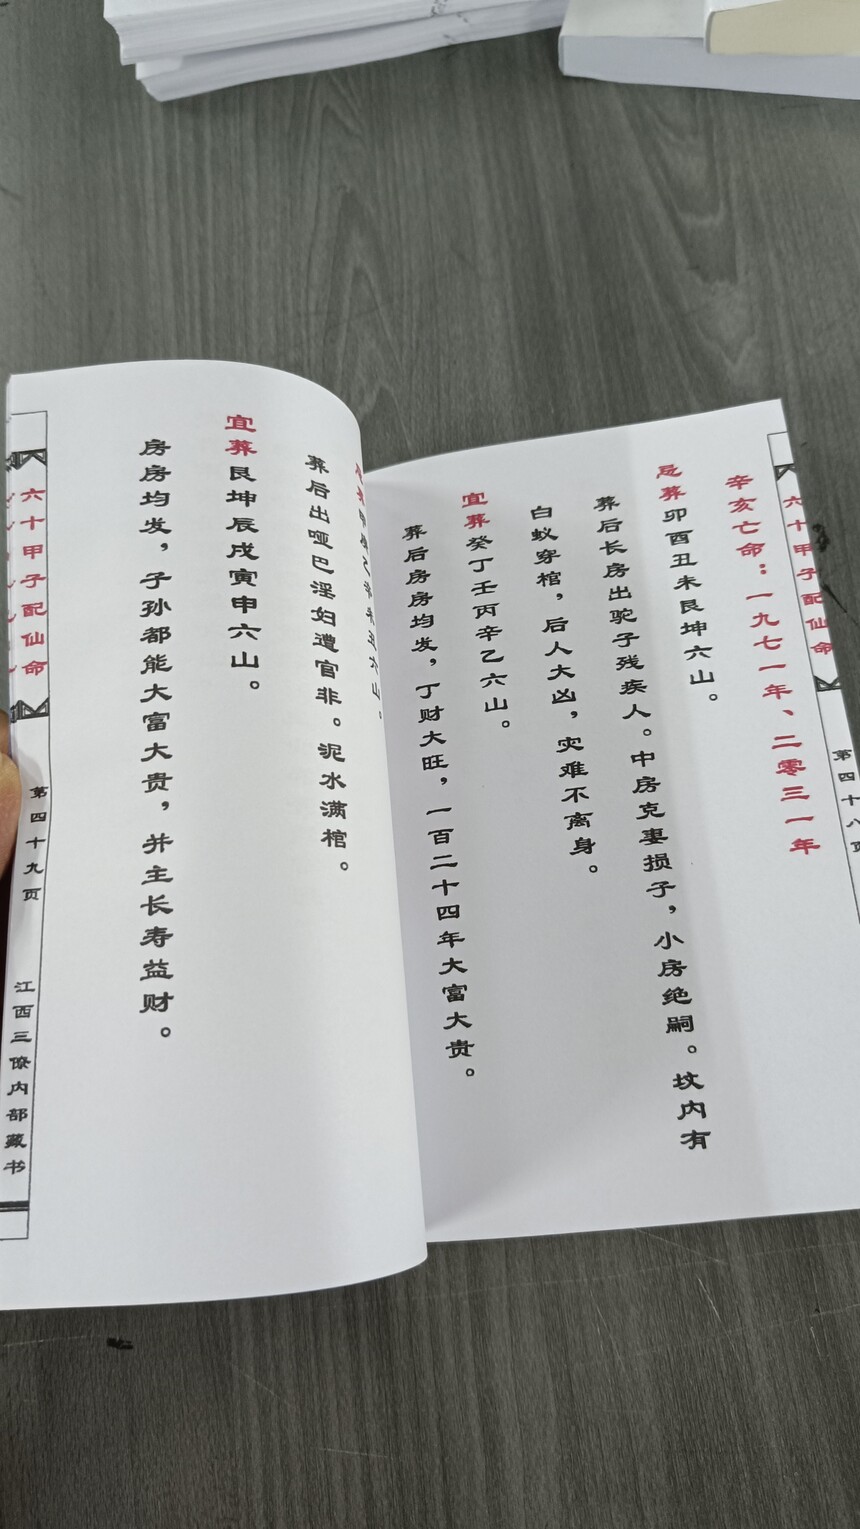 六十甲子配仙命
第四十八页
辛亥亡命：一九七一年、二零三一年
忌葬卯酉丑未艮坤六山。
葬后长房出驼子残疾人。中房克妻损子，小房绝嗣。坟内有
白蚁穿棺，后人大凶，灾难不离身。
宜葬癸丁壬丙辛乙六山。
葬后房房均发，丁财大旺，一百二十四年大富大贵。
六山。
葬后出哑巴淫妇遭官非。泥水满棺。
宜葬艮坤辰戌寅申六山。
房房均发，子孙都能大富大贵，并主长寿益财。
六十甲子配仙命
第四十九页
江西三僚内部藏书